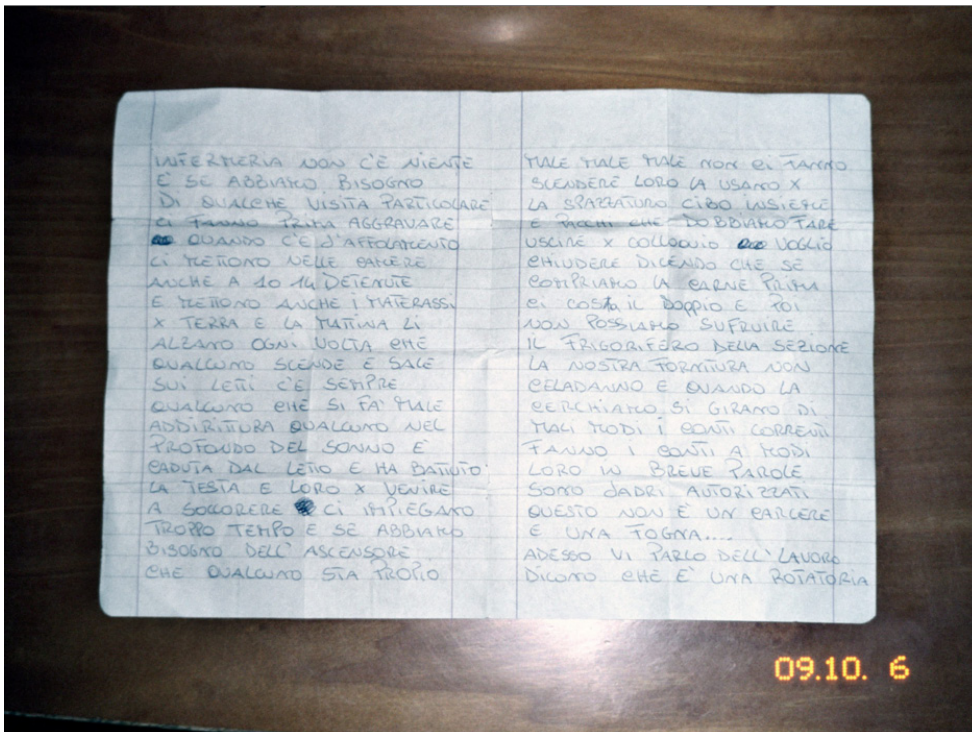 INFERMERIA NON C'È NIENTE
E SE ABBIAMO BISOGNO
DI QUALCHE VISITA PARTICOLARE
CI FANNO PRIMA AGGRAVARE
QUANDO C'È L'AFFOLAMENTO
CI METTONO NELLE CAMERE
ANCHE A 10 14 DETENUTE
E METTONO ANCHE I MATERASSI
X TERRA E LA MATTINA LI
ALZANO OGNI VOLTA CHE
QUALCUNO SCENDE E SALE
SUI LETI C'È SEMPRE
QUALCUNO CHE SI FA' MALE
ADDIRITTURA QUALCUNO NEL
PROFONDO DEL SONNO E
CADUTA DAL LETTO E HA BATTUTO
LA TESTA E LORO X VENIRE
A SOCCORERE CI IMPIEGANO
TROPPO TEMPO E SE ABBIAMO
BISOGNO DELL'ASCENSORE
CHE QUALCUNO STA PROPIO
MALE MALE MALE NON CI FANNO
SCENDERE LORO LA USANO X
LA SPAZZATURA CIBO INSIEME
E PACCHI CHE DOBBIAMO FARE
USCIRE X COLLOQUIO VOGLIO
CHIUDERE DICENDO CHE SE
COMPRIAMO LA CARNE PRIMA
CI COSTA IL DOPPIO E POI
NON POSSIAMO SUFRUIRE
IL FRIGORIFERO DELLA SEZIONE
LA NOSTRA FORNITURA NON
CELADANNO E QUANDO LA
CERCHIAMO SI GIRANO DI
MALI MODI I CONTI CORRENTI
FANNO I CONTI A MODI
LORO IN BREVE PAROLE
SONO LADRI AUTORIZZATI
QUESTO NON È UN CARCERE
E UNA FOGNA....
ADESSO VI PARLO DELL'LAVORO
DICONO CHE E' UNA ROTATORIA
09.10. 6